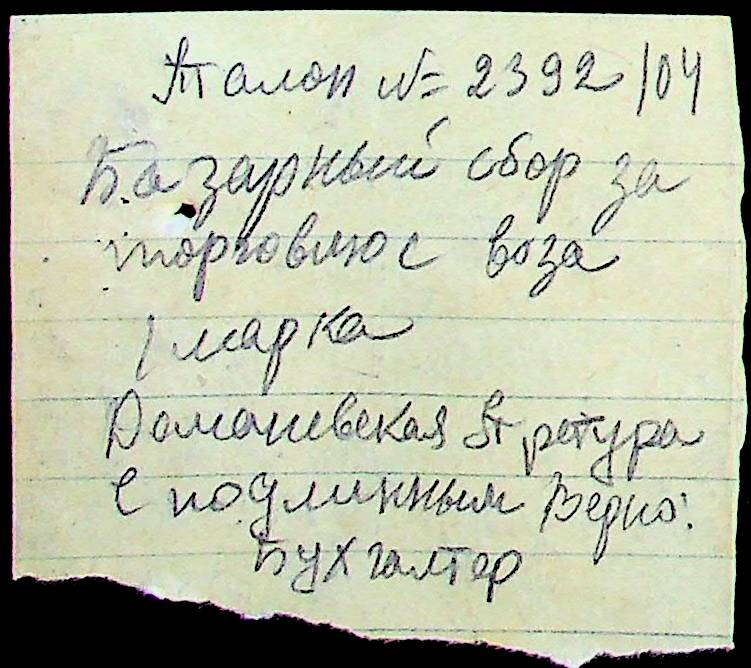 Талон № 2392/04
Базарный сбор за
торговлю с воза
1 марка
Доманевская претура
С подлинным Верно:
Бухгалтер